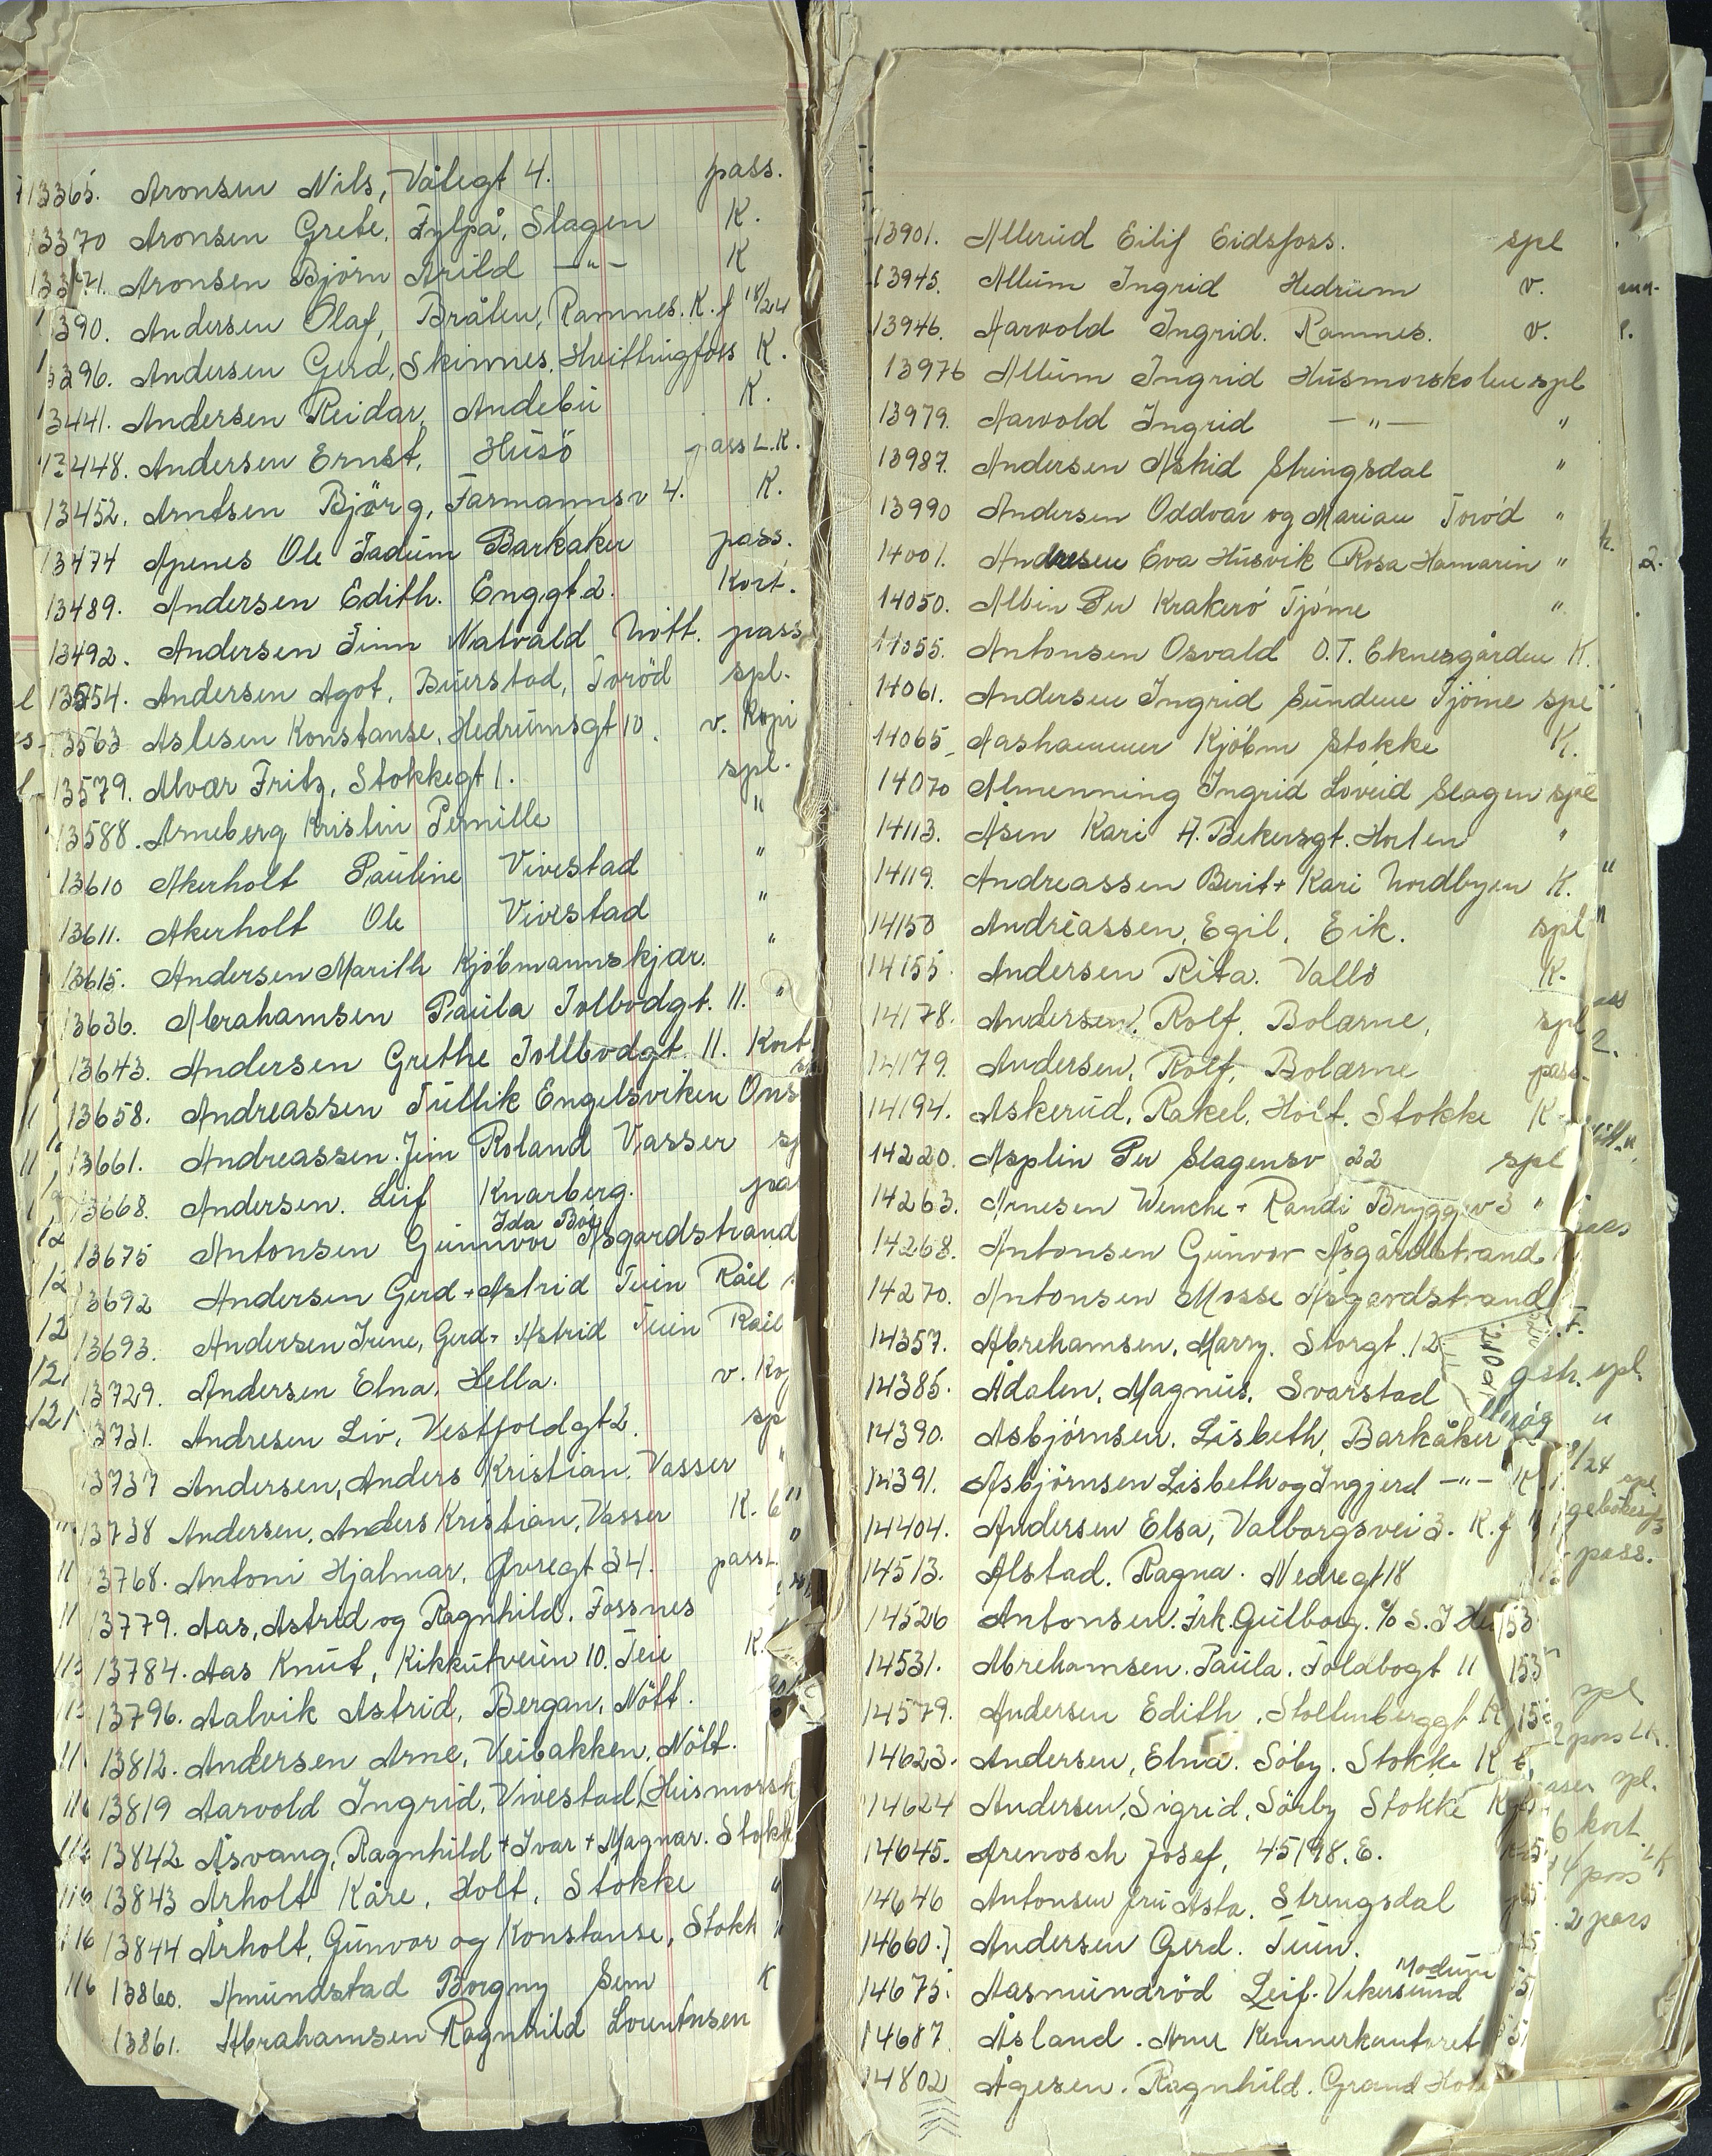 13365. Aronsen Nils, Vålegt 4. pass.
13370 Aronsen Grete, Fylpå, Slagen K.
13371. Aronsen Bjørn Arild —"— K
1390. Andersen Olaf, Bråten, Ramnes. K. f 18/24
13396. Andersen Gerd, Skinnes, Hvittingfoss K.
13441. Andersen Reidar, Andebu K.
13448. Andersen Ernst, Husö pass L.K.
13452. Arntsen Björg, Farmannsv 4. K.
13474 Apenes Ole Fadum Barkaker pass.
13489. Andersen Edith. Enggt 2. Kort.
13492. Andersen Finn Natvald Nött. pass
13554. Andersen Agot, Buerstad, Toröd spl.
13563 Aslesen Konstanse, Hedrumsgt 10. v. Kopi
13579. Alvær Fritz, Stokkegt 1. spl.
13588. Arneberg Kristin Pernille "
13610 Akerholt Pauline Vivestad "
13611. Akerholt Ole Vivestad "
13615. Andersen Marith Kjöbmannskjær. "
13636. Abrahamsen Paula Tolbodgt. 11. "
13643. Andersen Grethe Tollbodgt. 11. Kort
13658. Andreassen Tullik Engelsviken Ons
13661. Andreassen. Jim Roland Vasser sp
13668. Andersen. Leif Knarberg. pa
Ida Boe
13675 Antonsen Gunnvor Åsgårdstrand
13692 Andersen Gerd + Astrid Tuin Råel
13693. Andersen Irene, Gerd + Astrid Tuin Råel
13729. Andersen Elna, Hella. v. Ko
13731. Andresen Liv, Vestfoldgt 2. sp
13737 Andersen, Anders Kristian. Vasser "
13738 Andersen, Anders Kristian, Vasser K. 6 "
13768. Antoni Hjalmar, Øvregt 34. pass L.
13779. Aas, Astrid og Ragnhild. Fossnes
13784. Aas Knut, Kikkutveien 10. Teie K.
13796. Aalvik Astrid, Bergan, Nött.
13812. Andersen Arne, Veibakken, Nött.
13819 Aarvold Ingrid, Vivestad, (Husmorsk
13842 Åsvang, Ragnhild + Ivar + Magnar. Stokk
13843 Årholt Kåre, Holt, Stokke "
13844 Årholt, Gunvor og Konstanse, Stokk "
13860. Amundstad Borgny Sem K
13861. Abrahamsen Ragnhild Lorentnsen
13901. Allerud Eilif Eidsfoss. spl
13945. Allum Ingrid Hedrum v.
13946. Aarvold Ingrid. Ramnes. v.
13976 Allum Ingrid Husmorskolen spl
13979. Aarvold Ingrid —"— "
13987. Andersen Askid Stringsdal "
13990 Andersen Oddvar og Marian Toröd "
14001. Andresen Eva Husvik Rosa Hamarin "
14050. Albin Per Krakerö Tjöme "
14055. Antonsen Osvald O.T. Eknesgården K.
14061. Andersen Ingrid Sundene Tjöme spl
14065 Aashammer Kjöbm Stokke K.
14070 Almenning Ingrid Löveid Slagen spl
14113. Åsen Kari A. Bekersgt. Horten "
14119. Andreassen Berit + Kari Nordbyen K. "
14150 Andreassen, Egil, Eik. spl "
14155. Andersen Rita. Vallö K.
14178. Andersen, Rolf, Bolærne, spl
14179. Andersen, Rolf, Bolærne pass.
14194. Askerud, Rakel, Holt. Stokke K
14220. Asplin Per Slagensv 22 spl
14263. Arnesen Wenche + Randi Bryggerv 3 "
14268. Antonsen Gunvor Åsgårdstrand
14270. Antonsen Mosse Åsgårdstrand
14357. Abrehamsen, Marry. Storgt. 12
14385. Ådalen, Magnus, Svarstad
14390. Asbjörnsen, Lisbeth, Barkåker
14391. Asbjörnsen Lisbeth og Ingjerd —"— K.
14404. Andersen Elsa, Valborgsvei 3. K. f
14513. Alstad, Ragna. Nedregt 18
14526 Antonsen. Frk. Gulborg. c/o S. J.
14531. Abrehamsen. Paula. Toldbogt 11
14579. Andersen Edith, Stoltenberggt K
14623. Andersen, Elna. Söby. Stokke K
14624 Andersen, Sigrid, Sörby Stokke K
14645. Arenosch Josef, 45198. E.
14646 Antonsen fru Asta. Strengsdal
14660. Andersen Gerd. Tuin.
Modum
14675. Aasmundröd Leif. Vikersund
14687 Åsland. Arne Kemnerkontoret
14802 Ågesen. Ragnhild. Grand Hote
pass.
spl
6 kort
2 pass